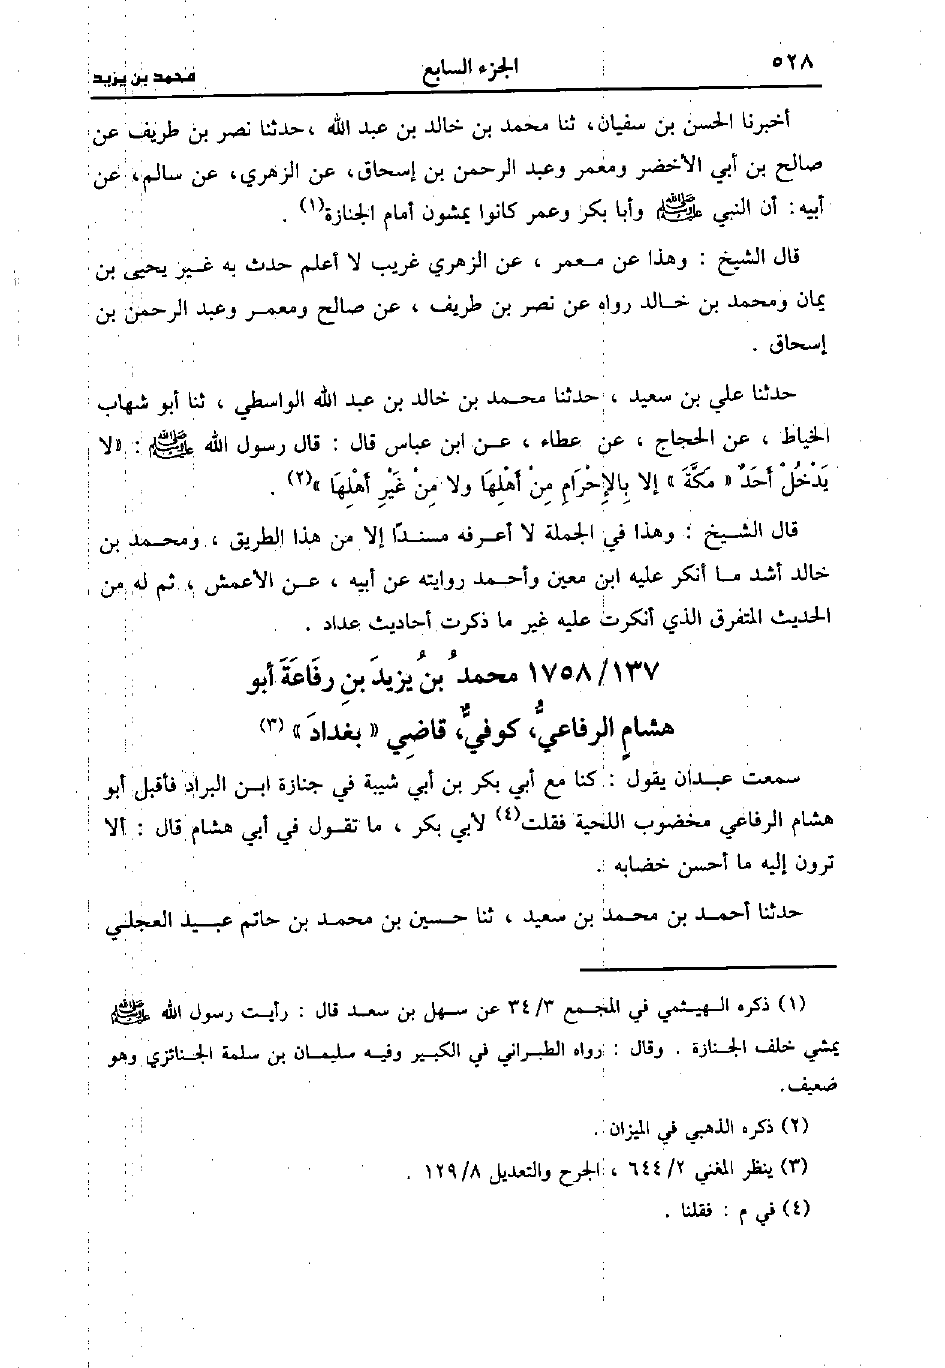 ٥٢٨ الجزء السابع محمد بن يزيد
أخبرنا الحسن بن سفيان، ثنا محمد بن خالد بن عبد الله ،حدثنا نصر بن طريف عن
صالح بن أبي الأخضر ومعمر وعبد الرحمن بن إسحاق، عن الزهري، عن سالم، عن
أبيه: أن النبي ﷺ وأبا بكر وعمر كانوا يمشون أمام الجنازة(١) .
قال الشيخ : وهذا عن معمر ، عن الزهري غريب لا أعلم حدث به غير يحيى بن
يمان ومحمد بن خالد رواه عن نصر بن طريف ، عن صالح ومعمر وعبد الرحمن بن
إسحاق .
حدثنا علي بن سعيد ، حدثنا محمد بن خالد بن عبد الله الواسطي ، ثنا أبو شهاب
الخياط ، عن الحجاج ، عن عطاء ، عن ابن عباس قال : قال رسول الله ﷺ : «لا
يَدْخُلْ أَحَدٌ « مَكَّةَ » إلا بِالإِحْرَامِ مِنْ أَهْلِهَا ولا مِنْ غَيْرِ أَهْلِهَا »(٢) .
قال الشيخ : وهذا في الجملة لا أعرفه مسندًا إلا من هذا الطريق ، ومحمد بن
خالد أشد ما أنكر عليه ابن معين وأحمد روايته عن أبيه ، عن الأعمش ، ثم له من
الحديث المتفرق الذي أنكرت عليه غير ما ذكرت أحاديث عداد .
١٧٥٨/١٣٧ محمدُ بنُ يزيدَ بنِ رفَاعَةَ أبو
هشامٍ الرفاعيُّ، كوفيٌّ، قاضِي « بغدادَ » (٣)
سمعت عبدان يقول : كنا مع أبي بكر بن أبي شيبة في جنازة ابن البراد فأقبل أبو
هشام الرفاعي مخضوب اللحية فقلت(٤) لأبي بكر ، ما تقول في أبي هشام قال : ألا
ترون إليه ما أحسن خضابه .
حدثنا أحمد بن محمد بن سعيد ، ثنا حسين بن محمد بن حاتم عبيد العجلي
(١) ذكره الهيثمي في المجمع ٣٤/٣ عن سهل بن سعد قال : رأيت رسول الله ﷺ
يمشي خلف الجنازة . وقال : رواه الطبراني في الكبير وفيه سليمان بن سلمة الجنائزي وهو
ضعيف.
(٢) ذكره الذهبي في الميزان .
(٣) ينظر المغني ٦٤٤/٢ ، الجرح والتعديل ١٢٩/٨ .
(٤) في م : فقلنا .